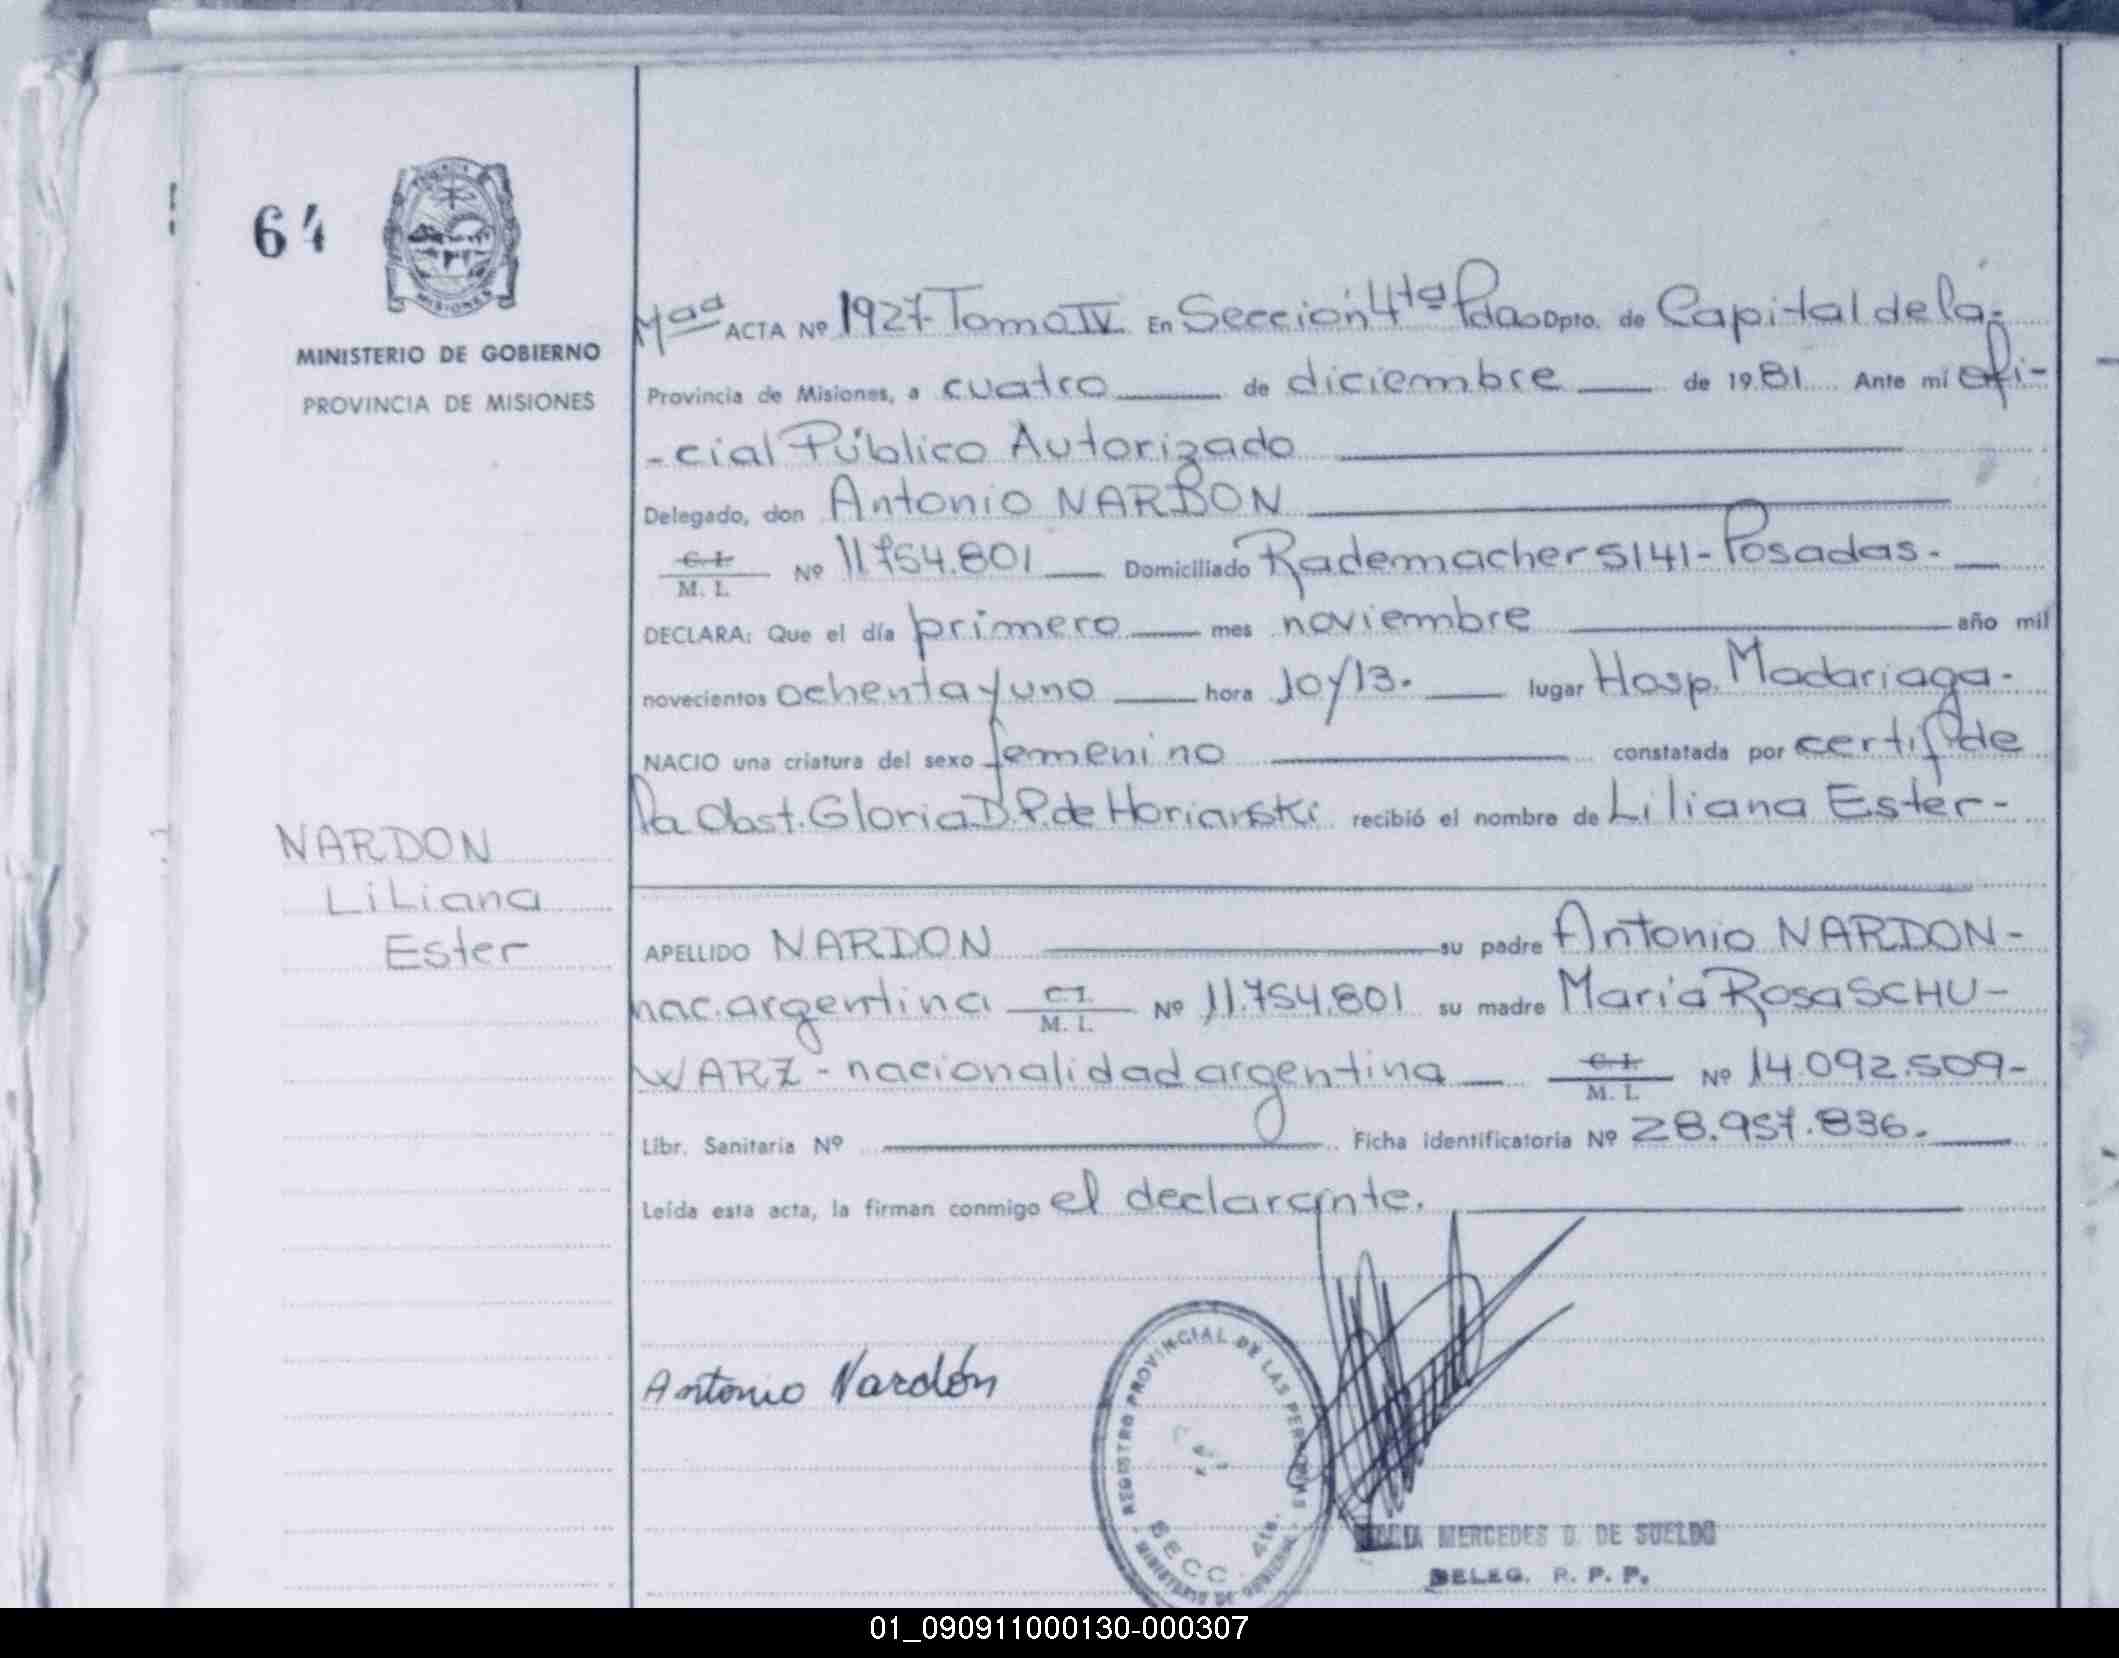 64
MINISTERIO DE GOBIERNO
PROVINCIA DE MISIONES
NARDON
Liliana
Ester
ACTA Nº 1927 Tomo IV En Sección 4ta Pdas Dpto. de Capital de la
Provincia de Misiones, a cuatro de diciembre de 1981 Ante mí ofi-
-cial Público Autorizado
Delegado, don Antonio NARDON
C. I. M. I. Nº 11754.801 Domiciliado Rademacher 5141 - Posadas -
DECLARA: Que el día primero mes noviembre año mil
novecientos ochenta y uno hora 10 y 13. lugar Hosp. Madariaga -
NACIO una criatura del sexo femenino constatada por certif. de
la Obst. Gloria D.P. de Horianski recibió el nombre de Liliana Ester -
APELLIDO NARDON su padre Antonio NARDON -
nac. argentina C. I. M. I. Nº 11.754.801 su madre María Rosa SCHU-
WARZ - nacionalidad argentina C. I. M. I. Nº 14.092.509 -
Libr. Sanitaria Nº Ficha identificatoria Nº 28.957.836.
Leída esta acta, la firman conmigo el declarante.
Antonio Nardón
REGISTRO PROVINCIAL DE LAS PERSONAS
SECC. 4ta.
MINISTERIO DE GOBIERNO
MERCEDES D. DE SUELDO
DELEG. R. P. P.
01_090911000130-000307